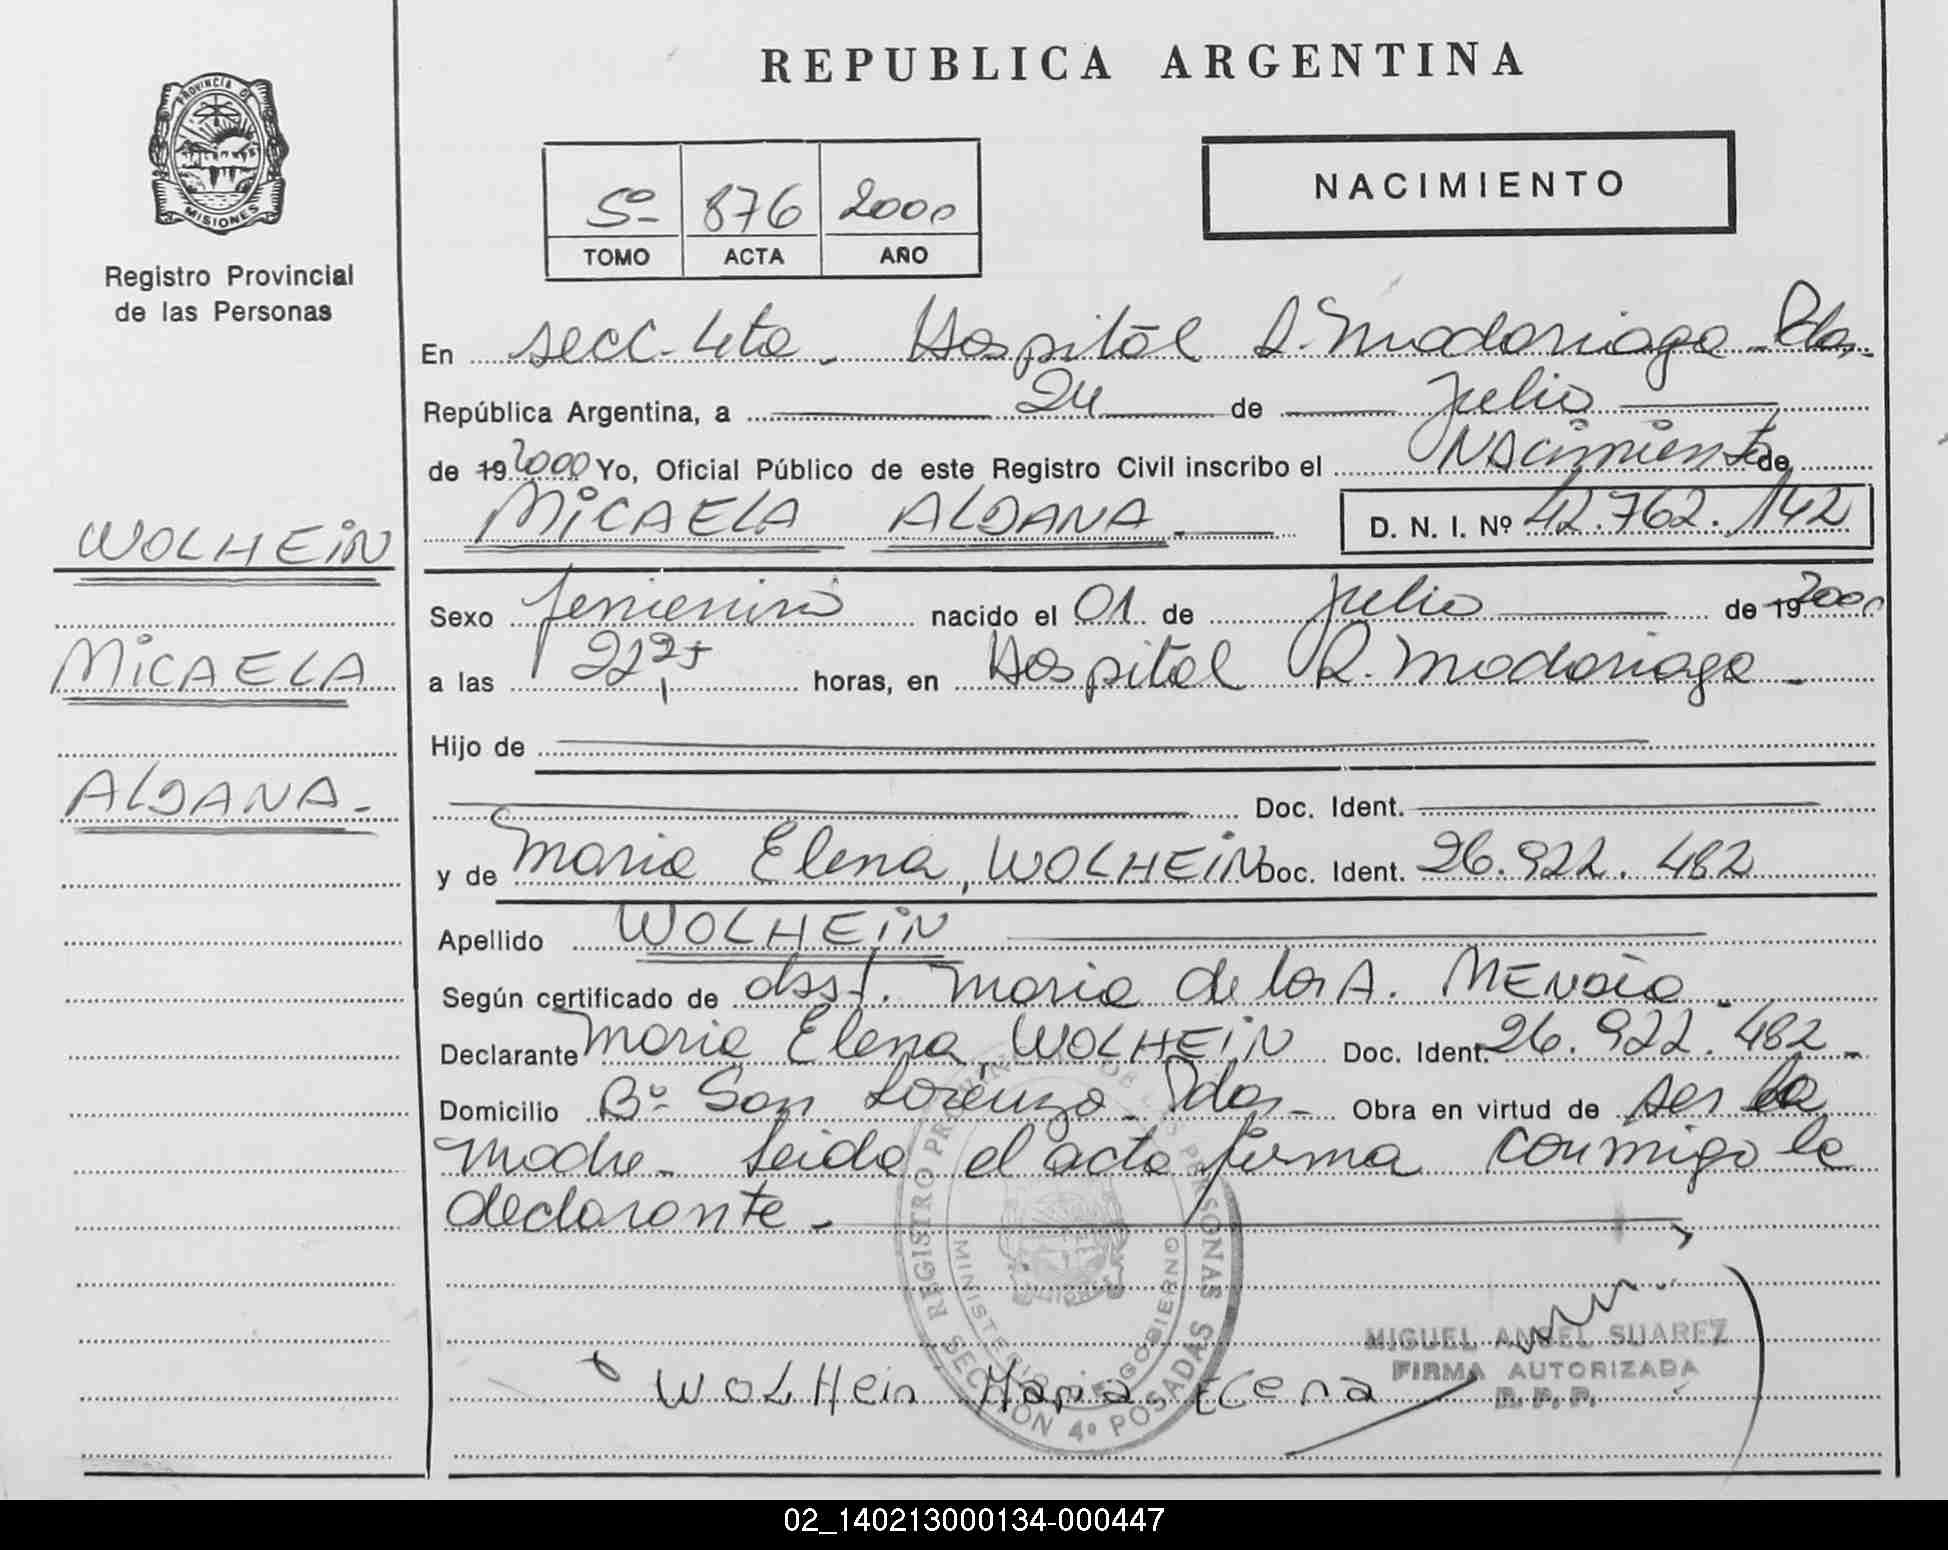 REPUBLICA ARGENTINA
PROVINCIA DE
MISIONES
Registro Provincial
de las Personas
5º 876 2000
TOMO ACTA AÑO
NACIMIENTO
En secc. 4ta. Hospital R. Madariaga Pdas.
República Argentina, a 24 de Julio
de 19 2000 Yo, Oficial Público de este Registro Civil inscribo el Nacimiento de
MICAELA ALDANA.
D. N. I. Nº 42.762.142
WOLHEIN
MICAELA
ALDANA.
Sexo femenino nacido el 01 de Julio de 19 2000
a las 21,25 horas, en Hospital R. Madariaga
Hijo de
Doc. Ident.
y de Maria Elena, WOLHEIN Doc. Ident. 26.922.482
Apellido WOLHEIN
Según certificado de obst. Maria de los A. MENDEZ
Declarante Maria Elena WOLHEIN Doc. Ident. 26.922.482
Domicilio Bº San Lorenzo. Pdas. Obra en virtud de ser la
madre. Leida el acta firma conmigo la
declarante.
REGISTRO PERSONAS
MINISTERIO GOBIERNO
SECCION 4º POSADAS
MIGUEL ANGEL SUAREZ
FIRMA AUTORIZADA
R. P. P.
WOLHein Maria ELena
02_140213000134-000447